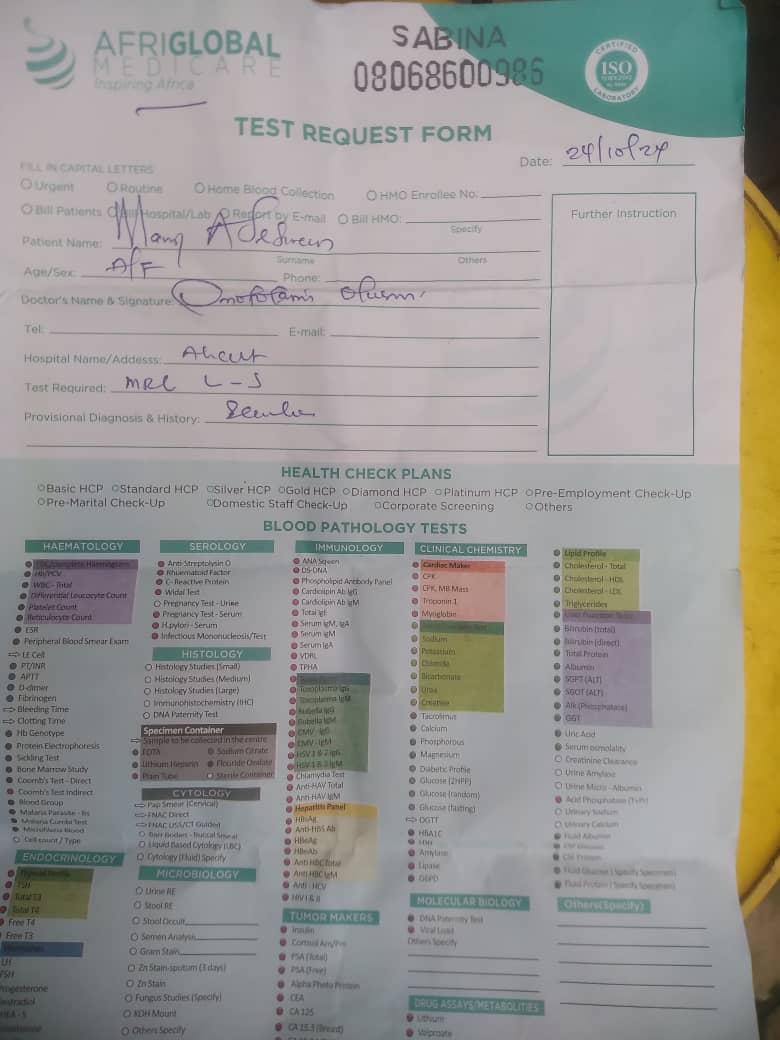 AFRIGLOBAL
MEDICARE
Inspiring Africa
SABINA
08068600986
CERTIFIED
ISO
LABORATORY
TEST REQUEST FORM
Date: 24/10/24
FILL IN CAPITAL LETTERS
Urgent Routine Home Blood Collection HMO Enrollee No:
Bill Patients Bill Hospital/Lab Report by E-mail Bill HMO:
Specify
Patient Name: Mary
Surname Others
Age/Sex: A/F Phone:
Doctor's Name & Signature:
Tel: E-mail:
Hospital Name/Addesss:
Test Required: MRI L-S
Provisional Diagnosis & History:
Further Instruction
HEALTH CHECK PLANS
Basic HCP Standard HCP Silver HCP Gold HCP Diamond HCP Platinum HCP Pre-Employment Check-Up
Pre-Marital Check-Up Domestic Staff Check-Up Corporate Screening Others
BLOOD PATHOLOGY TESTS
HAEMATOLOGY
Hb/PCV
WBC - Total
Differential Leucocyte Count
Platelet Count
Reticulocyte Count
ESR
Peripheral Blood Smear Exam
LE Cell
PT/INR
APTT
D-dimer
Fibrinogen
Bleeding Time
Clotting Time
Hb Genotype
Protein Electrophoresis
Sickling Test
Bone Marrow Study
Coomb's Test - Direct
Coomb's Test Indirect
Blood Group
Malaria Parasite - Bs
Malaria Combi Test
Microfilaria Blood
Cell count / Type
ENDOCRINOLOGY
Thyroid Profile
TSH
Total T3
Total T4
Free T4
Free T3
LH
FSH
Progesterone
SEROLOGY
Anti-Streptolysin O
Rhuematoid Factor
C- Reactive Protein
Widal Test
Pregnancy Test - Urine
Pregnancy Test - Serum
H.pylori - Serum
Infectious Mononucleosis/Test
HISTOLOGY
Histology Studies (Small)
Histology Studies (Medium)
Histology Studies (Large)
Immunohistochemistry (IHC)
DNA Paternity Test
Specimen Container
Sample to be collected in the centre
EDTA Sodium Citrate
Lithium Heparin Flouride Oxalate
Plain Tube Sterile Container
CYTOLOGY
Pap Smear (Cervical)
FNAC Direct
FNAC USS/CT Guided
Barr Bodies - Buccal Smear
Liquid Based Cytology (LBC)
Cytology (Fluid) Specify
MICROBIOLOGY
Urine RE
Stool RE
Stool Occult
Semen Analysis
Gram Stain
Zn Stain-sputum (3 days)
Zn Stain
Fungus Studies (Specify)
KOH Mount
Others Specify
IMMUNOLOGY
ANA Sqeen
DS-DNA
Phospholipid Antibody Panel
Cardiolipin Ab IgG
Cardiolipin Ab IgM
Total IgE
Serum IgM, IgA
Serum IgM
Serum IgA
VDRL
TPHA
Toxoplasma IgG
Toxoplasma IgM
Rubella IgG
Rubella IgM
CMV - IgG
CMV - IgM
HSV 1 & 2 IgG
HSV 1 & 2 IgM
Chlamydia Test
Anti-HAV Total
Anti-HAV IgM
Hepatitis Panel
HBsAg
Anti-HBS Ab
HBeAg
HBeAb
Anti HBC Total
Anti HBC IgM
Anti - HCV
HIV I & II
TUMOR MAKERS
Insulin
Cortisol Am/Pm
PSA (Total)
PSA (Free)
Alpha Photo Protein
CEA
CA 125
CA 15.3 (Breast)
CLINICAL CHEMISTRY
Cardiac Maker
CPK
CPK, MB Mass
Troponin 1
Myoglobin
Sodium
Potassium
Chloride
Bicarbonate
Urea
Creatine
Tacrolimus
Calcium
Phosphorous
Magnesium
Diabetic Profile
Glucose (2HPP)
Glucose (random)
Glucose (fasting)
OGTT
HBA1C
Amylase
Lipase
G6PD
MOLECULAR BIOLOGY
DNA Paternity Test
Viral Load
Others Specify
DRUG ASSAYS/METABOLITIES
Lithium
Valproate
Lipid Profile
Cholesterol - Total
Cholesterol - HDL
Cholesterol - LDL
Triglycerides
Liver Function Tests
Bilirubin (total)
Bilirubin (direct)
Total Protein
Albumin
SGPT (ALT)
SGOT (ALT)
Alk (Phosphatase)
GGT
Uric Acid
Serum osmolality
Creatinine Clearance
Urine Amylase
Urine Micro - Albumin
Acid Phosphatase (T+Pr)
Urinary Sodium
Urinary Calcium
Fluid Albumin
CSF Glucose
CSF Protein
Fluid Glucose (Specify Specimen)
Fluid Protein (Specify Specimen)
Others(Specify)